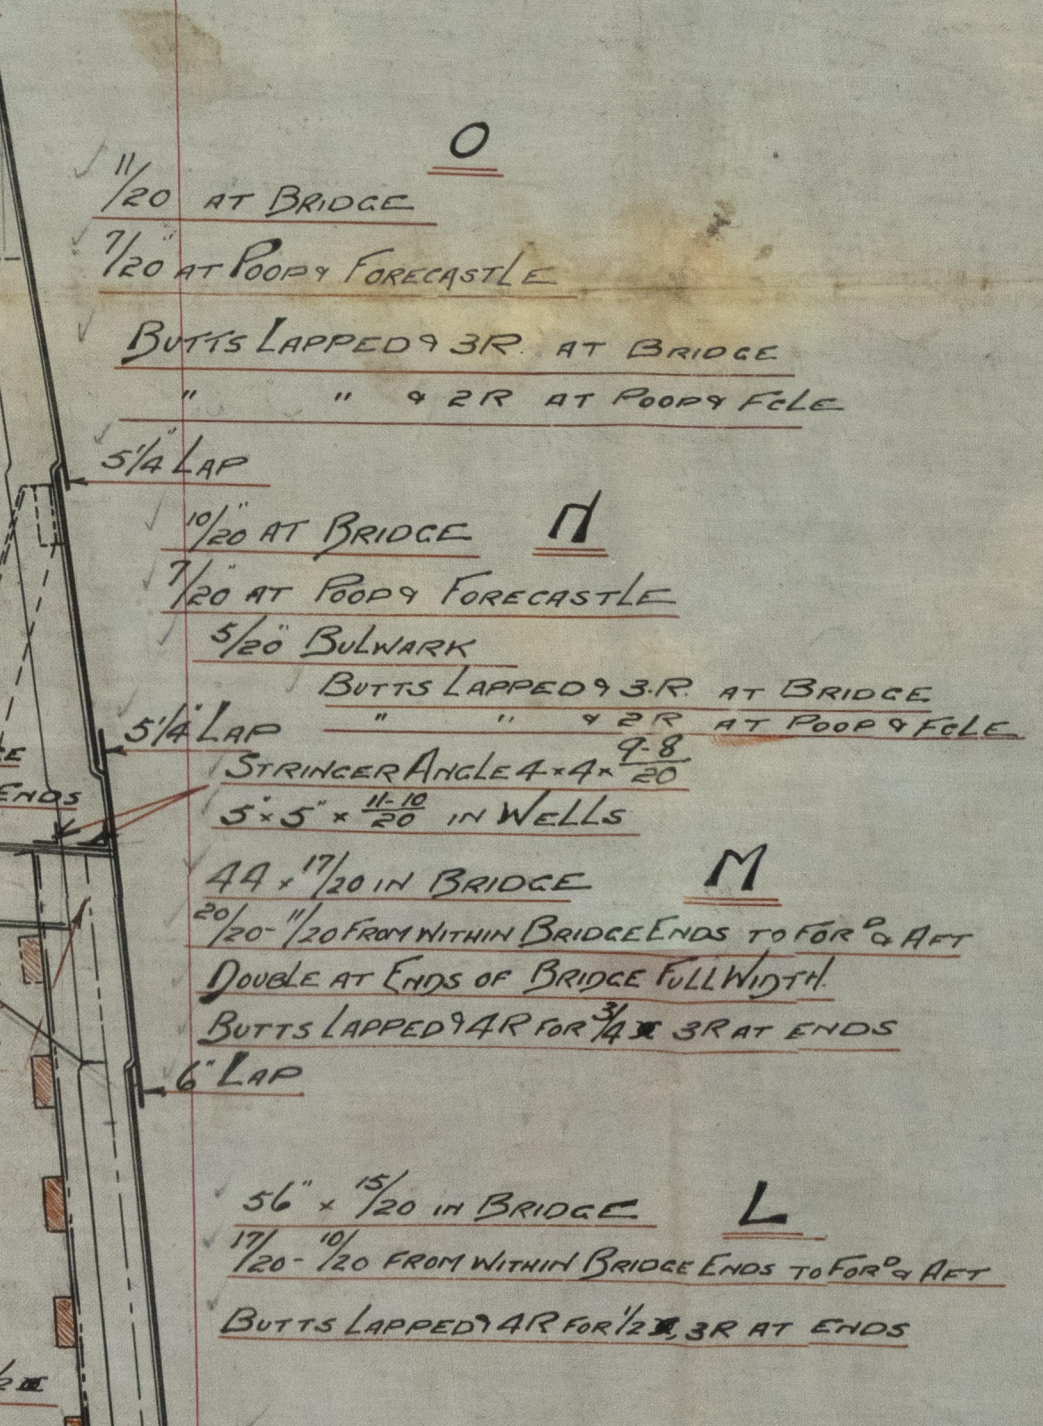 O
11/20 AT BRIDGE
7/20" AT POOP & FORECASTLE
BUTTS LAPPED & 3R. AT BRIDGE
" " & 2R AT POOP & FCLE
5 1/4" LAP
N
10/20" AT BRIDGE
7/20" AT POOP & FORECASTLE
5/20" BULWARK
BUTTS LAPPED & 3.R. AT BRIDGE
" " & 2R AT POOP & FCLE
5 1/4" LAP
STRINGER ANGLE 4 × 4 × 9-8/20
5" × 5" × 11-10/20 IN WELLS
ENDS
M
44 × 17/20 IN BRIDGE
20/20 - 11/20 FROM WITHIN BRIDGE ENDS TO FORD & AFT
DOUBLE AT ENDS OF BRIDGE FULL WIDTH.
BUTTS LAPPED & 4R FOR 3/4 3R AT ENDS
6" LAP
L
56" × 15/20 IN BRIDGE
17/20 - 10/20 FROM WITHIN BRIDGE ENDS TO FORD & AFT
BUTTS LAPPED & 4R FOR 1/2 , 3R AT ENDS